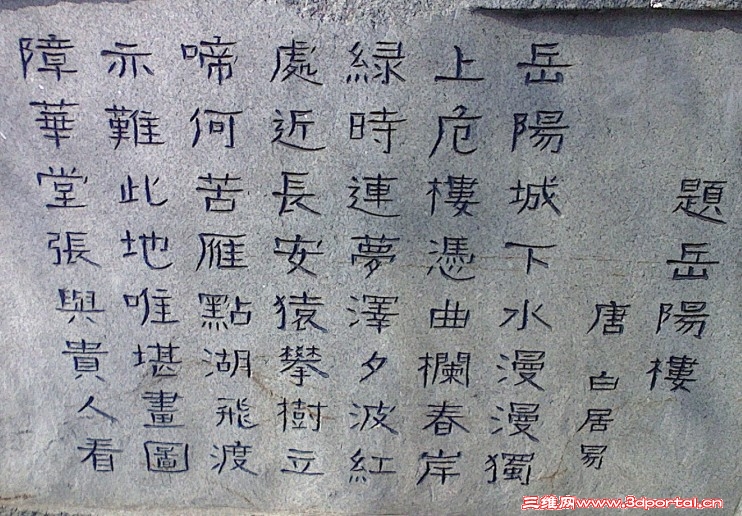 題岳陽樓
唐 白居易
岳陽城下水漫漫獨
上危樓憑曲欄春岸
緑時連夢澤夕波紅
處近長安猿攀樹立
啼何苦雁點湖飛渡
亦難此地唯堪畫圖
障華堂張與貴人看
三维网www.3dportal.cn